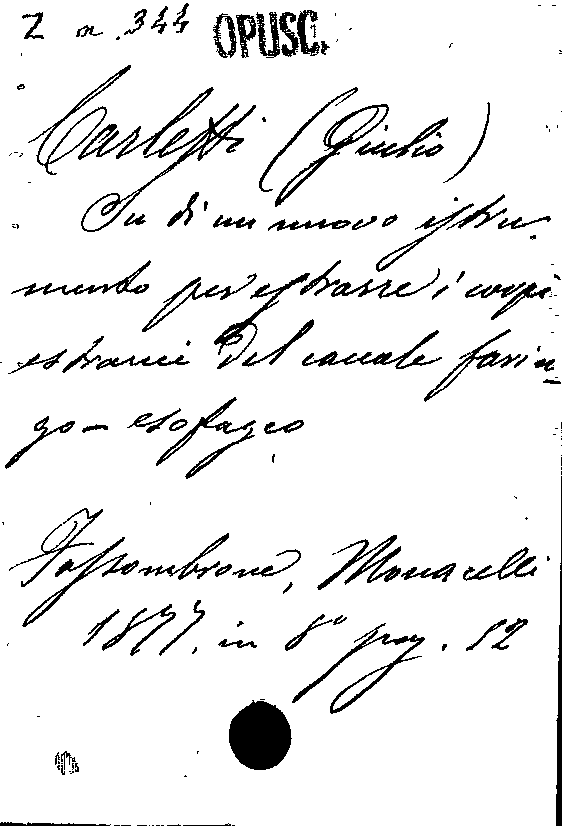 Z n. 344 OPUSC.
Carletti (Giulio)
Su di un nuovo istru-
mento per estrarre i corpi
estranei del canale farin-
go-esofageo
Fossombrone, Monacelli
1877, in 8° pag. 52